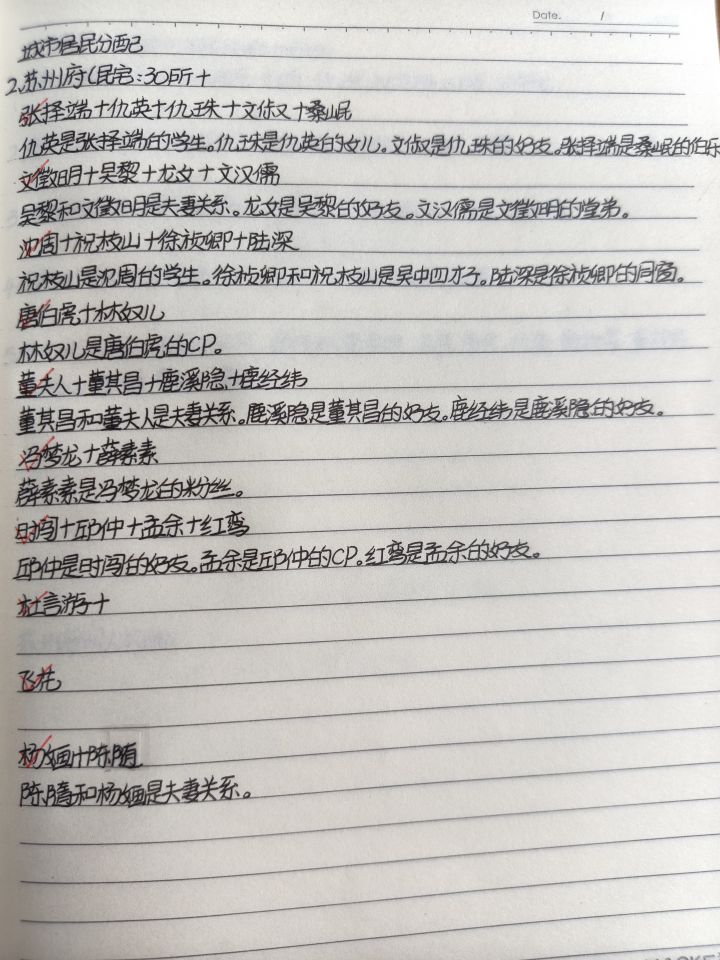 Date. /
城市居民分配
2.苏州府(民宅:30所+
张择端+仇英+仇珠+文俶+桑岷
仇英是张择端的学生。仇珠是仇英的女儿。文俶是仇珠的好友。张择端是桑岷的伯乐
文徵明+吴黎+龙女+文汉儒
吴黎和文徵明是夫妻关系。龙女是吴黎的好友。文汉儒是文徵明的堂弟。
沈周+祝枝山+徐祯卿+陆深
祝枝山是沈周的学生。徐祯卿和祝枝山是吴中四才子。陆深是徐祯卿的同窗。
唐伯虎+林奴儿
林奴儿是唐伯虎的CP。
董夫人+董其昌+鹿溪隐+鹿经纬
董其昌和董夫人是夫妻关系。鹿溪隐是董其昌的好友。鹿经纬是鹿溪隐的好友。
冯梦龙+薛素素
薛素素是冯梦龙的粉丝。
时闯+邱仲+孟余+红鸾
邱仲是时闯的好友。孟余是邱仲的CP。红鸾是孟余的好友。
杜言游+
飞花
杨婳+陈隋
陈隋和杨婳是夫妻关系。